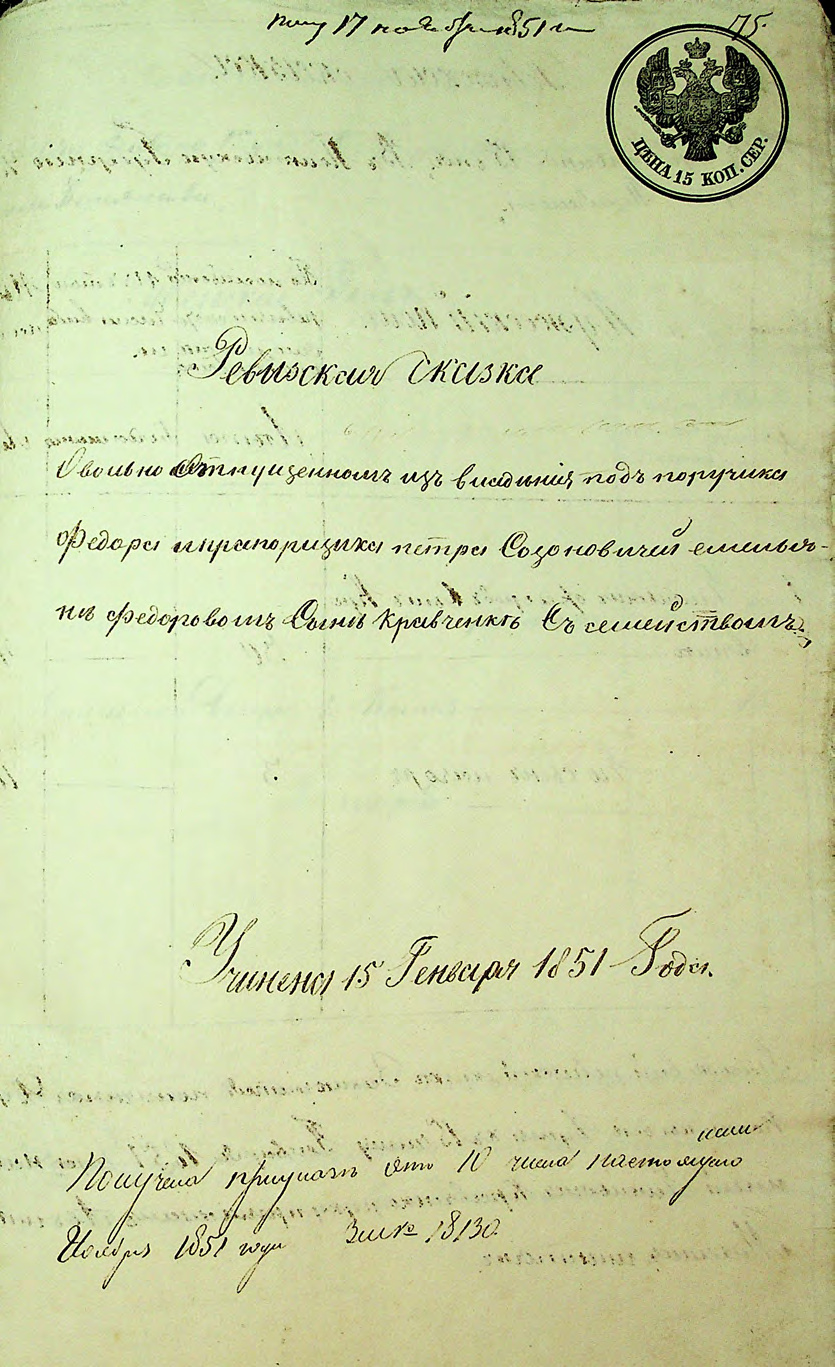 17 ноября 1851
75.
ЦѢНА 15 КОП. СЕР.
Ревизская сказка
О вольно Отпущенномъ изъ владѣнія подъ поручика
Федора и прапорщика петра Созоновичей емилья-
нѣ Федоровомъ Сынѣ Кравченкѣ Съ семействомъ
Учинена 15 Генваря 1851 Года.
Получена при указѣ отъ 10 числа настоящаго
Ноября 1851 года За № 18130.